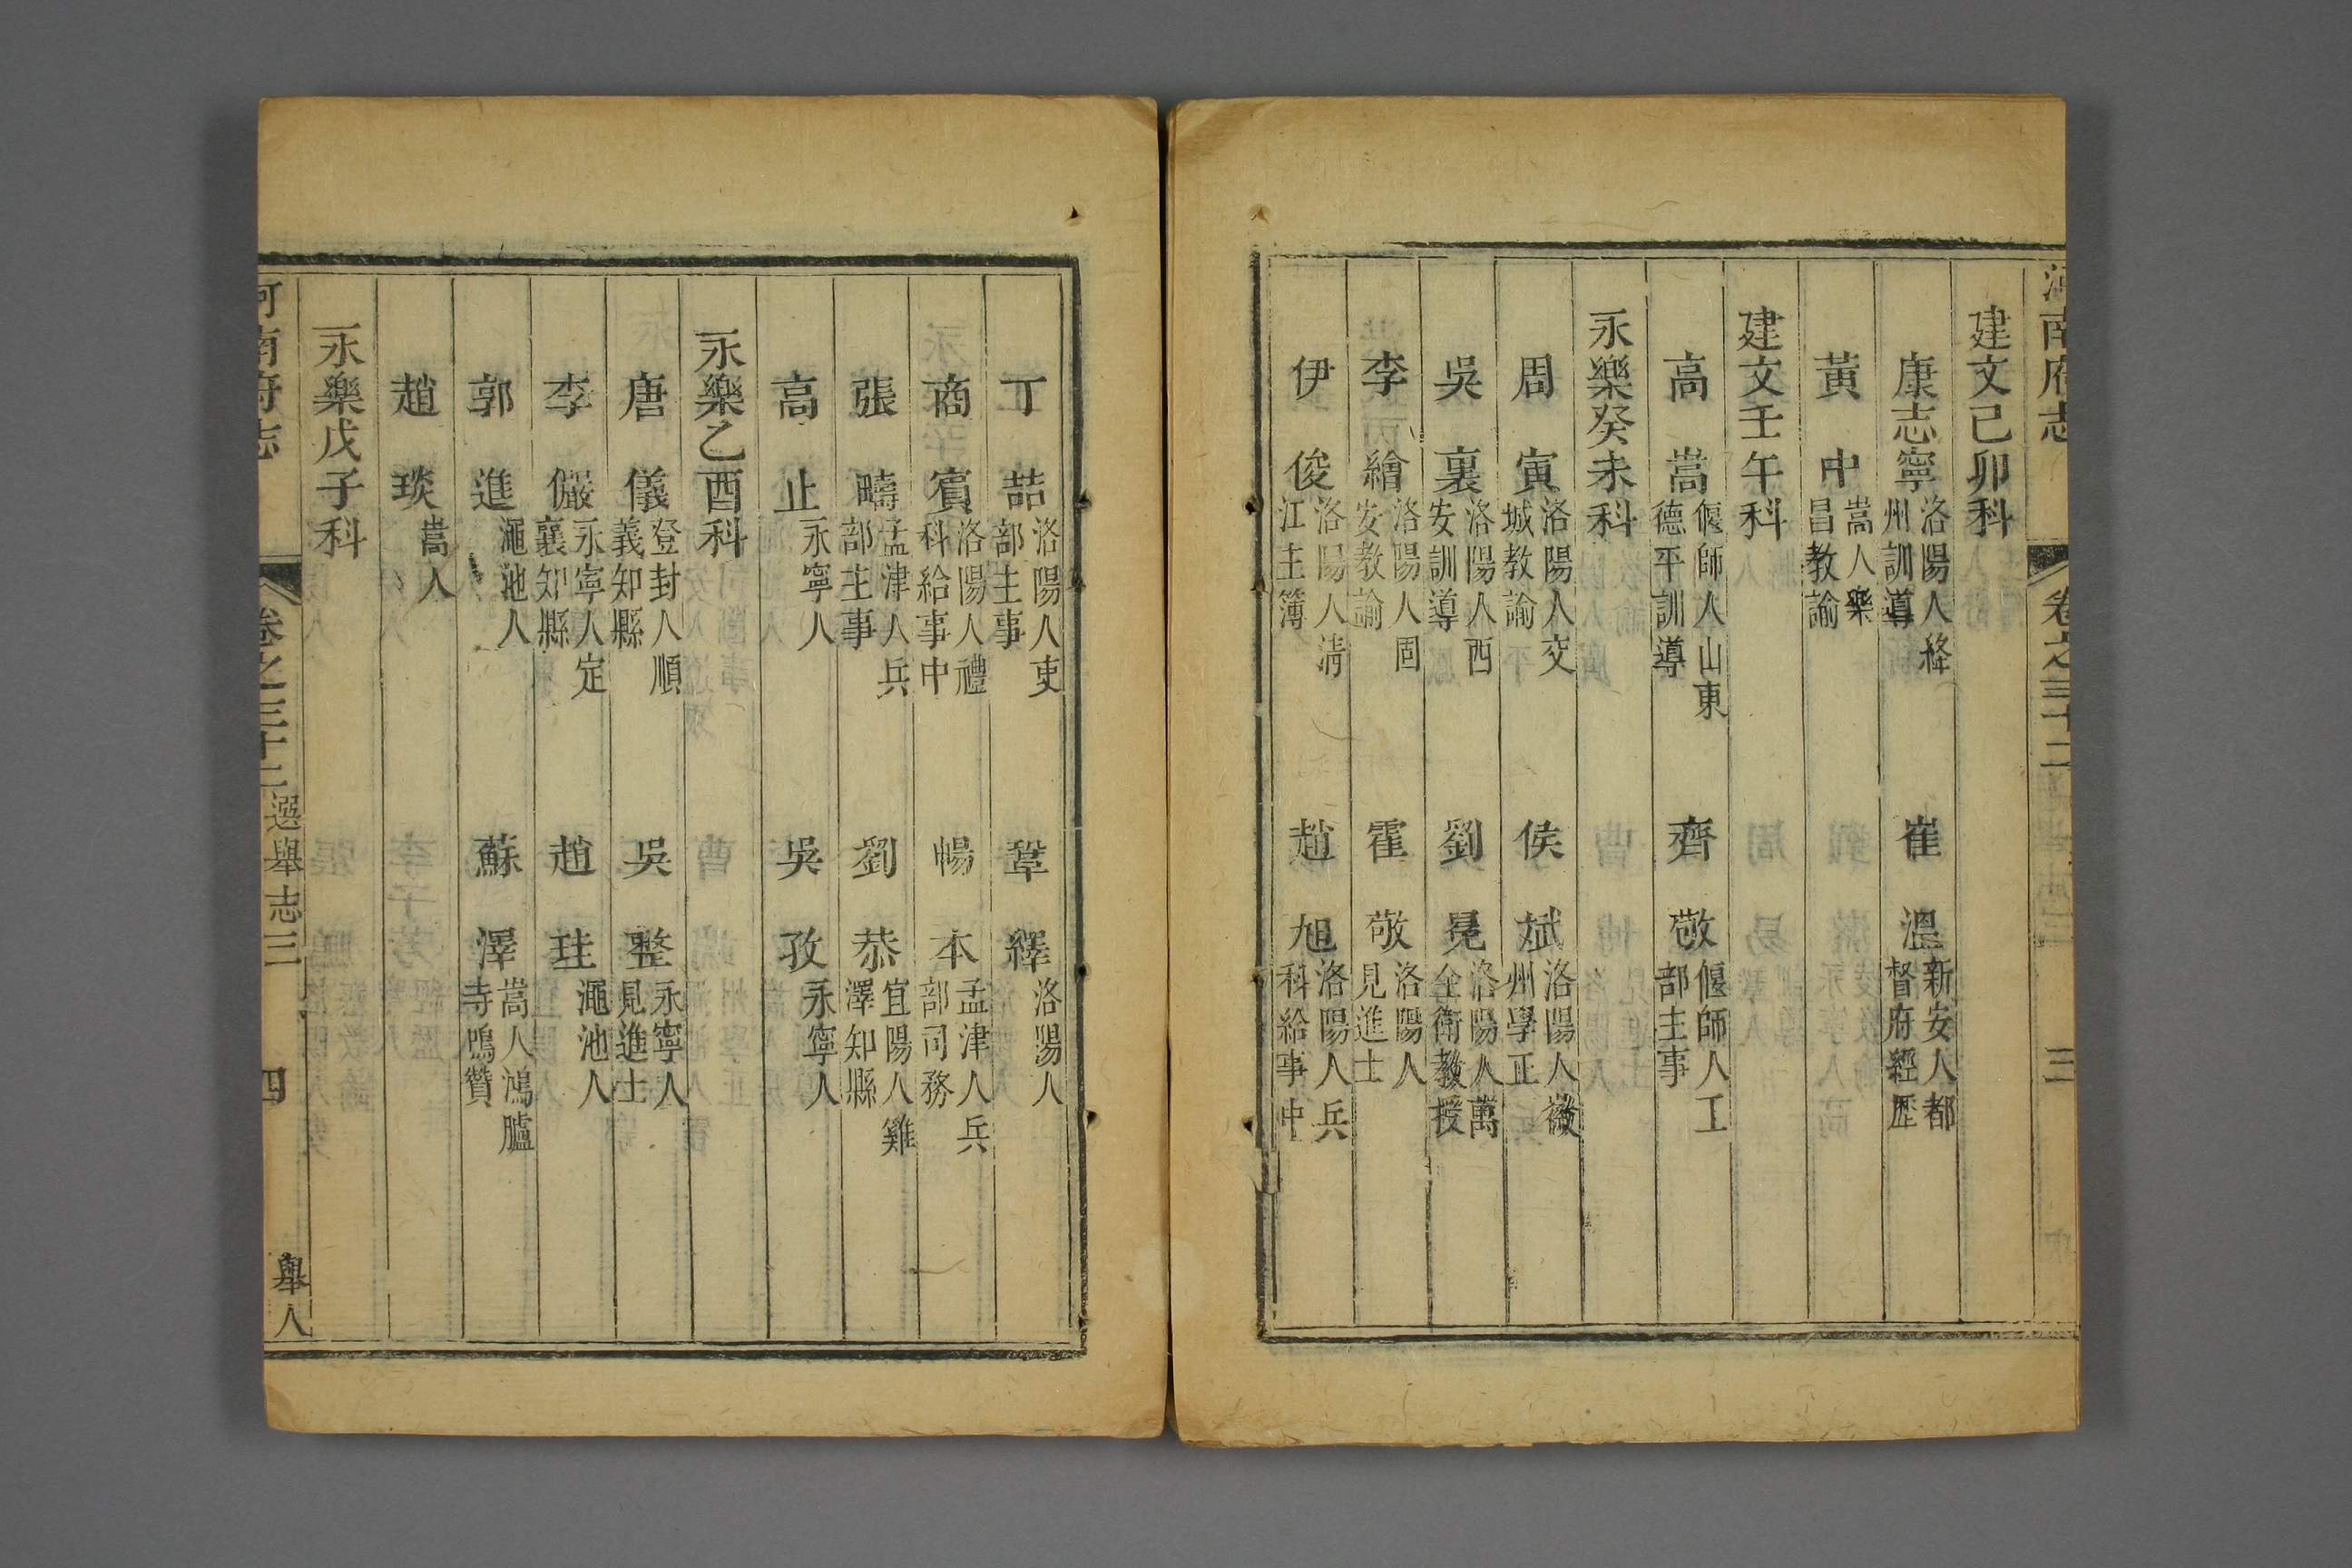 河南府志 卷之三十二 三
建文己卯科
康志寧 洛陽人絳州訓導 崔溫 新安人都督府經歷
黃中 嵩人樂昌教諭
建文壬午科
高嵩 偃師人山東德平訓導 齊敬 偃師人工部主事
永樂癸未科
周寅 洛陽人交城教諭 侯斌 洛陽人徽州學正
吳裏 洛陽人西安訓導 劉冕 洛陽人萬全衛教授
李繪 洛陽人固安教諭 霍敬 洛陽人見進士
伊俊 洛陽人清江主簿 趙旭 洛陽人兵科給事中
丁喆 洛陽人吏部主事 鞏繹 洛陽人
商賓 洛陽人禮科給事中 暢本 孟津人兵部司務
張疇 孟津人兵部主事 劉恭 宜陽人雞澤知縣
高止 永寧人 吳孜 永寧人
永樂乙酉科
唐儀 登封人順義知縣 吳整 永寧人見進士
李儼 永寧人定襄知縣 趙珪 澠池人
郭進 澠池人 蘇澤 嵩人鴻臚寺鳴贊
趙琰 嵩人
永樂戊子科
河南府志 卷之三十二 選舉志三 四 舉人